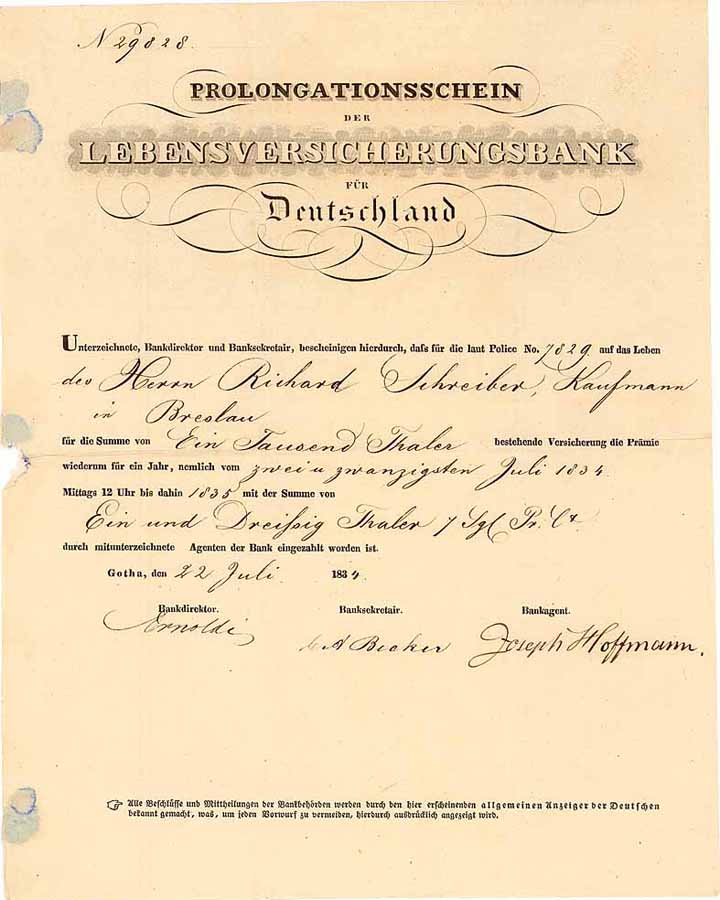 N 29828.
PROLONGATIONSSCHEIN
DER
LEBENSVERSICHERUNGSBANK
FÜR
Deutschland
Unterzeichnete, Bankdirektor und Banksekretair, bescheinigen hierdurch, dafs für die laut Police No. 7829 auf das Leben
des Herrn Richard Schreiber, Kaufmann
in Breslau
für die Summe von Ein Tausend Thaler bestehende Versicherung die Prämie
wiederum für ein Jahr, nemlich vom zwei u zwanzigsten Juli 1834
Mittags 12 Uhr bis dahin 1835 mit der Summe von
Ein und Dreißig Thaler 7 Sgl Pr. Ct.
durch mitunterzeichnete Agenten der Bank eingezahlt worden ist.
Gotha, den 22 Juli 1834.
Bankdirektor. Banksekretair. Bankagent.
Arnoldi Becker Joseph Hoffmann.
☞ Alle Beschlüsse und Mittheilungen der Bankbehörden werden durch den hier erscheinenden allgemeinen Anzeiger der Deutschen
bekannt gemacht, was, um jeden Vorwurf zu vermeiden, hierdurch ausdrücklich angezeigt wird.